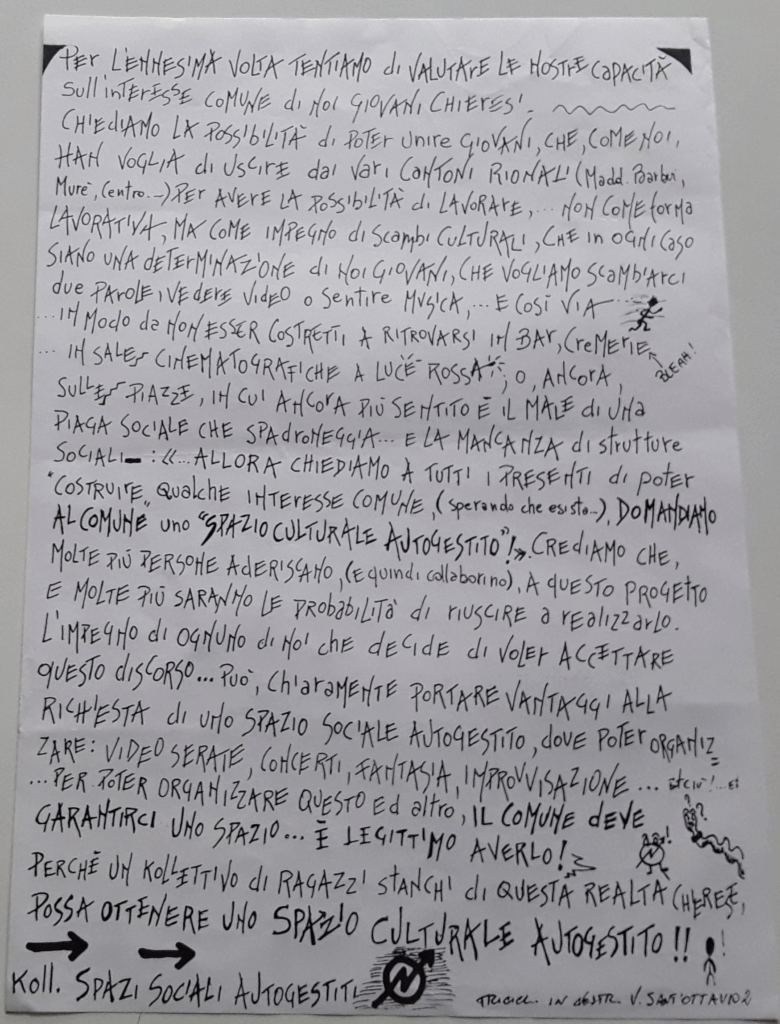 PER L'ENNESIMA VOLTA TENTIAMO di VALUTARE LE NOSTRE CAPACITÀ
SULL'INTERESSE COMUNE di NOI GIOVANI CHIERESI.
CHIEDIAMO LA POSSIBILITÀ di POTER UNIRE GIOVANI, CHE, COME NOI,
HAN VOGLIA di USCIRE dai VARI CANTONI RIONALI (Madd. Barbui,
Murè, Centro...) PER AVERE LA POSSIBILITÀ di LAVORARE,... NON COME forma
LAVORATIVA, MA COME IMPEGNO di Scambi CULTURALI, CHE in OGNI CASO
SIANO UNA dETERMINAZIONE di NOI GIOVANI, CHE VOGLIAMO SCAMBIARCI
due PAROLE, VEDERE VIDEO o SENTIRE MUSICA,... E COSÌ VIA
...IN MODO da NON ESSER COSTRETTI A RITROVARSI IN BAR, CREMERIE,
BLEAH!
... IN SALE CINEMATOGRAFICHE A LUCE ROSSA, O, ANCORA,
SULLE PIAZZE, IN CUI ANCORA PIÙ SENTITO È IL MALE di UNA
PIAGA SOCIALE CHE SPADRONEGGIA... E LA MANCANZA di STRUTTURE
SOCIALI - : «...ALLORA CHIEDIAMO A TUTTI I PRESENTI di POTER
"COSTRUIRE" QUALCHE INTERESSE COMUNE, (sperando che esista...), DOMANDIAMO
AL COMUNE UNO "SPAZIO CULTURALE AUTOGESTITO"!». CREDIAMO CHE,
MOLTE PIÙ PERSONE ADERISCANO, (E quindi collaborino), A QUESTO PROGETTO
E MOLTE PIÙ SARANNO LE PROBABILITÀ di RIUSCIRE a REALIZZARLO.
L'IMPEGNO di OGNUNO di NOI CHE DECIDE di VOLER ACCETTARE
QUESTO DISCORSO... PUÒ, CHIARAMENTE PORTARE VANTAGGI ALLA
RICHIESTA di UNO SPAZIO SOCIALE AUTOGESTITO, dOVE POTER ORGANIZ=
ZARE: VIDEO SERATE, CONCERTI, FANTASIA, IMPROVVISAZIONE...
...PER POTER ORGANIZZARE QUESTO Ed altro, IL COMUNE DEVE
GARANTIRCI UNO SPAZIO... È LEGITTIMO AVERLO!
PERCHÈ UN KOLLETTIVO di RAGAZZI STANCHI di QUESTA REALTÀ CHIERESE,
POSSA OTTENERE UNO SPAZIO CULTURALE AUTOGESTITO!!
Koll. SPAZI SOCIALI AUTOGESTITI
V. SANT'OTTAVIO 2